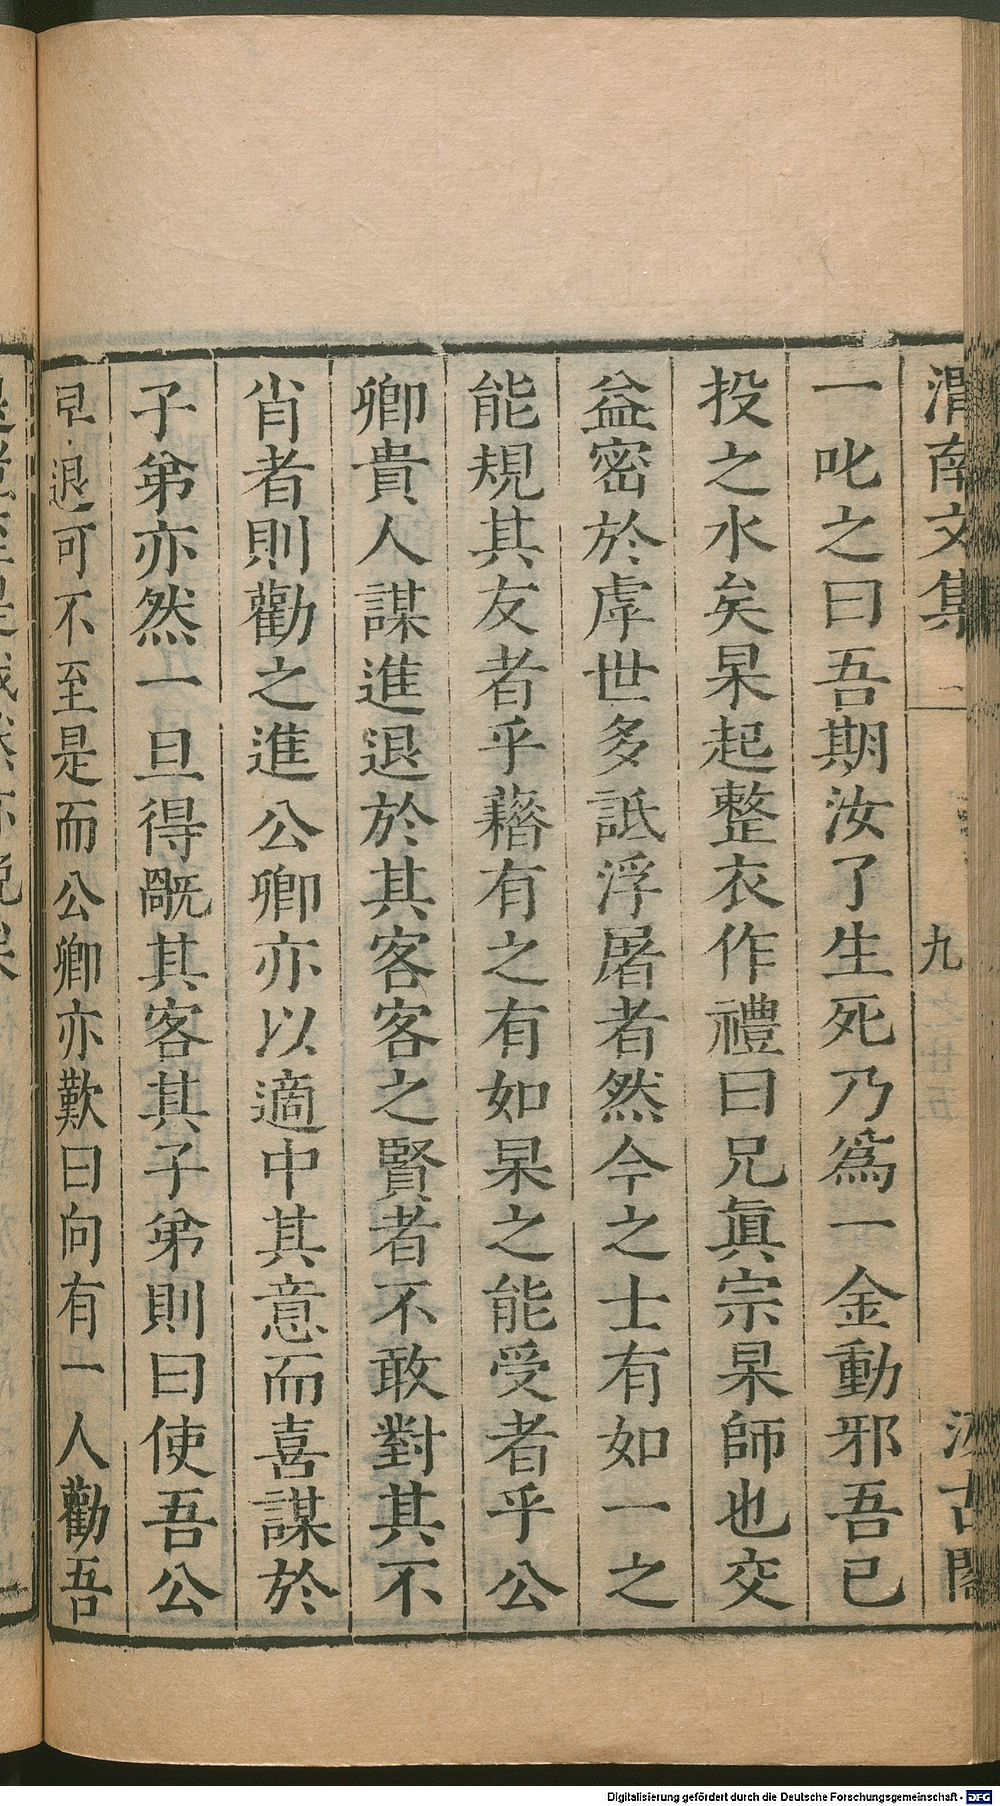 渭南文集
九
汲古閣
一叱之曰吾期汝了生死乃爲一金動邪吾已
投之水矣杲起整衣作禮曰兄眞宗杲師也交
益密於虖世多詆浮屠者然今之士有如一之
能規其友者乎藉有之有如杲之能受者乎公
卿貴人謀進退於其客客之賢者不敢對其不
肖者則勸之進公卿亦以適中其意而喜謀於
子弟亦然一旦得旤其客其子弟則曰使吾公
早退可不至是而公卿亦歎曰向有一人勸吾
Digitalisierung gefördert durch die Deutsche Forschungsgemeinschaft - DFG